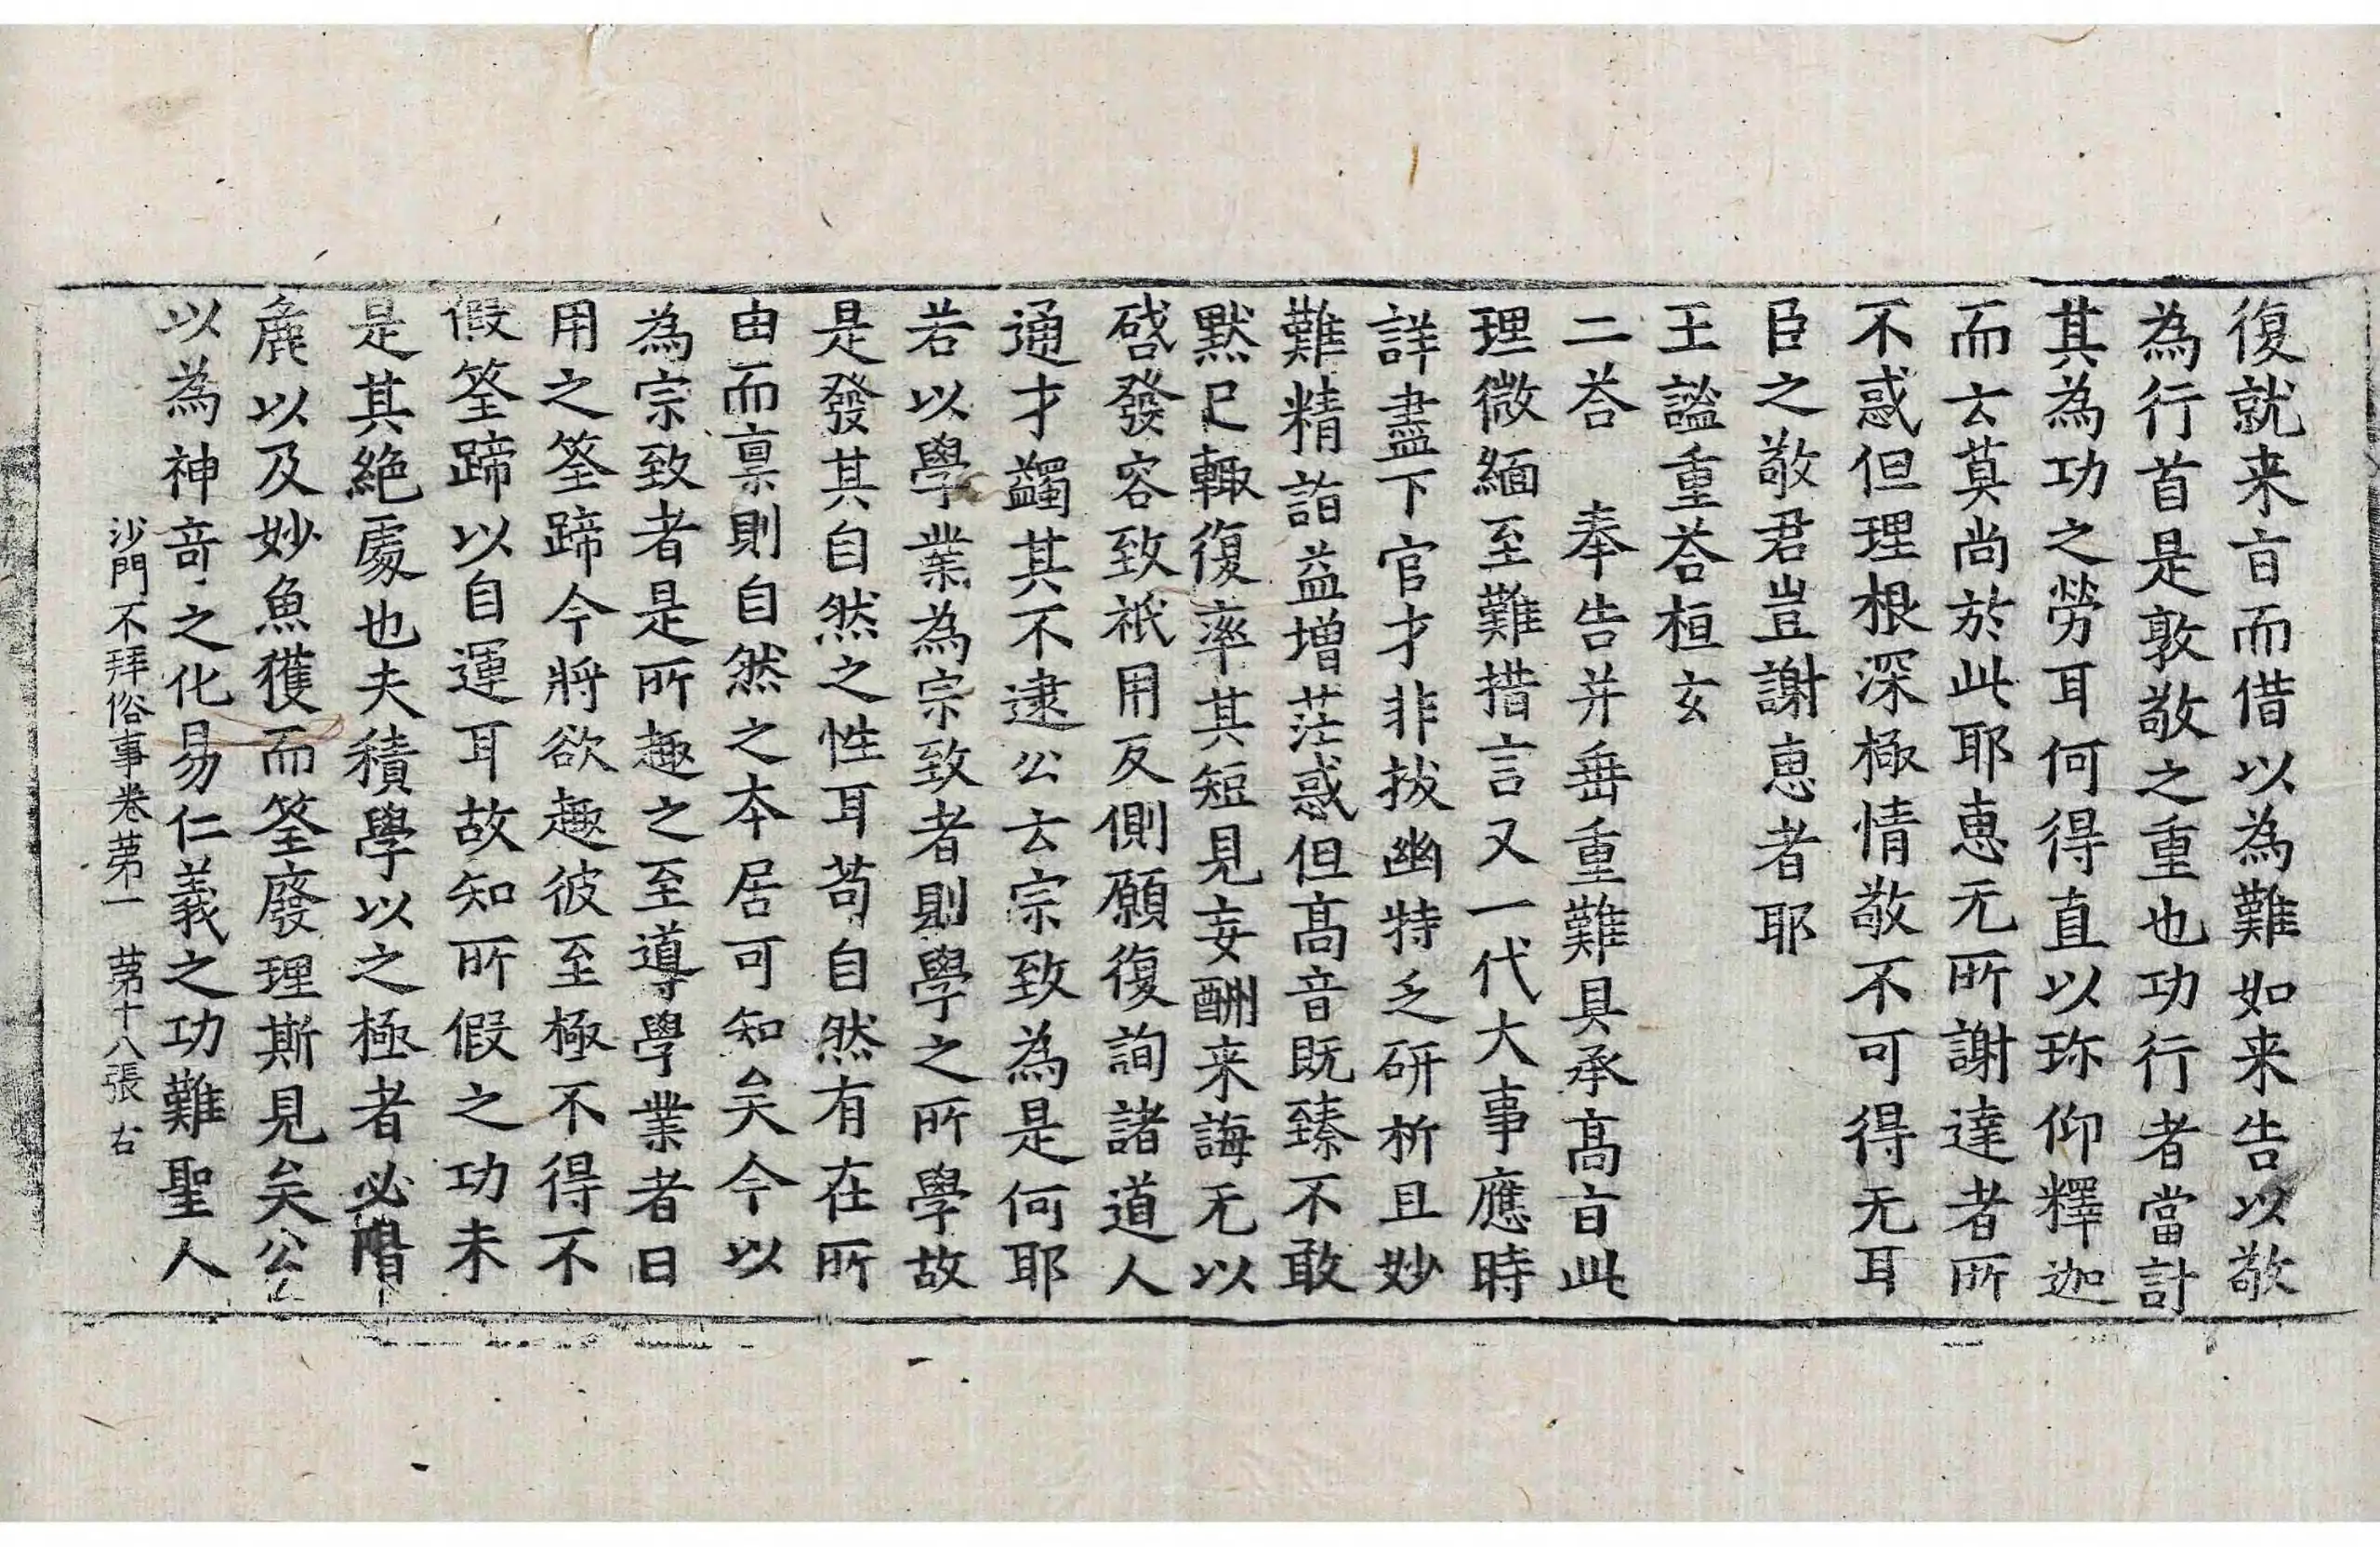 復就来㫖而借以為難如来告以敬
為行首是敦敬之重也功行者當計
其為功之勞耳何得直以珎仰釋迦
而云莫尚於此耶恵无所謝達者所
不惑但理根深極情敬不可得无耳
臣之敬君豈謝恵者耶
王謐重荅桓玄
二荅　奉告并垂重難具承髙㫖此
理微緬至難措言又一代大事應時
詳盡下官才非拔幽特乏研析且妙
難精詣益增茫惑但髙音既臻不敢
黙已輙復率其短見妄酬来誨无以
啓發容致祇用反側願復詢諸道人
通才蠲其不逮公云宗致為是何耶
若以學業為宗致者則學之所學故
是發其自然之性耳苟自然有在所
由而禀則自然之本居可知矣今以
為宗致者是所趣之至導學業者日
用之筌蹄今將欲趣彼至極不得不
假筌蹄以自運耳故知所假之功未
是其絶處也夫積學以之極者必階
麁以及妙魚獲而筌廢理斯見矣公
以為神奇之化易仁義之功難聖人
沙門不拜俗事卷苐一　苐十八張　右